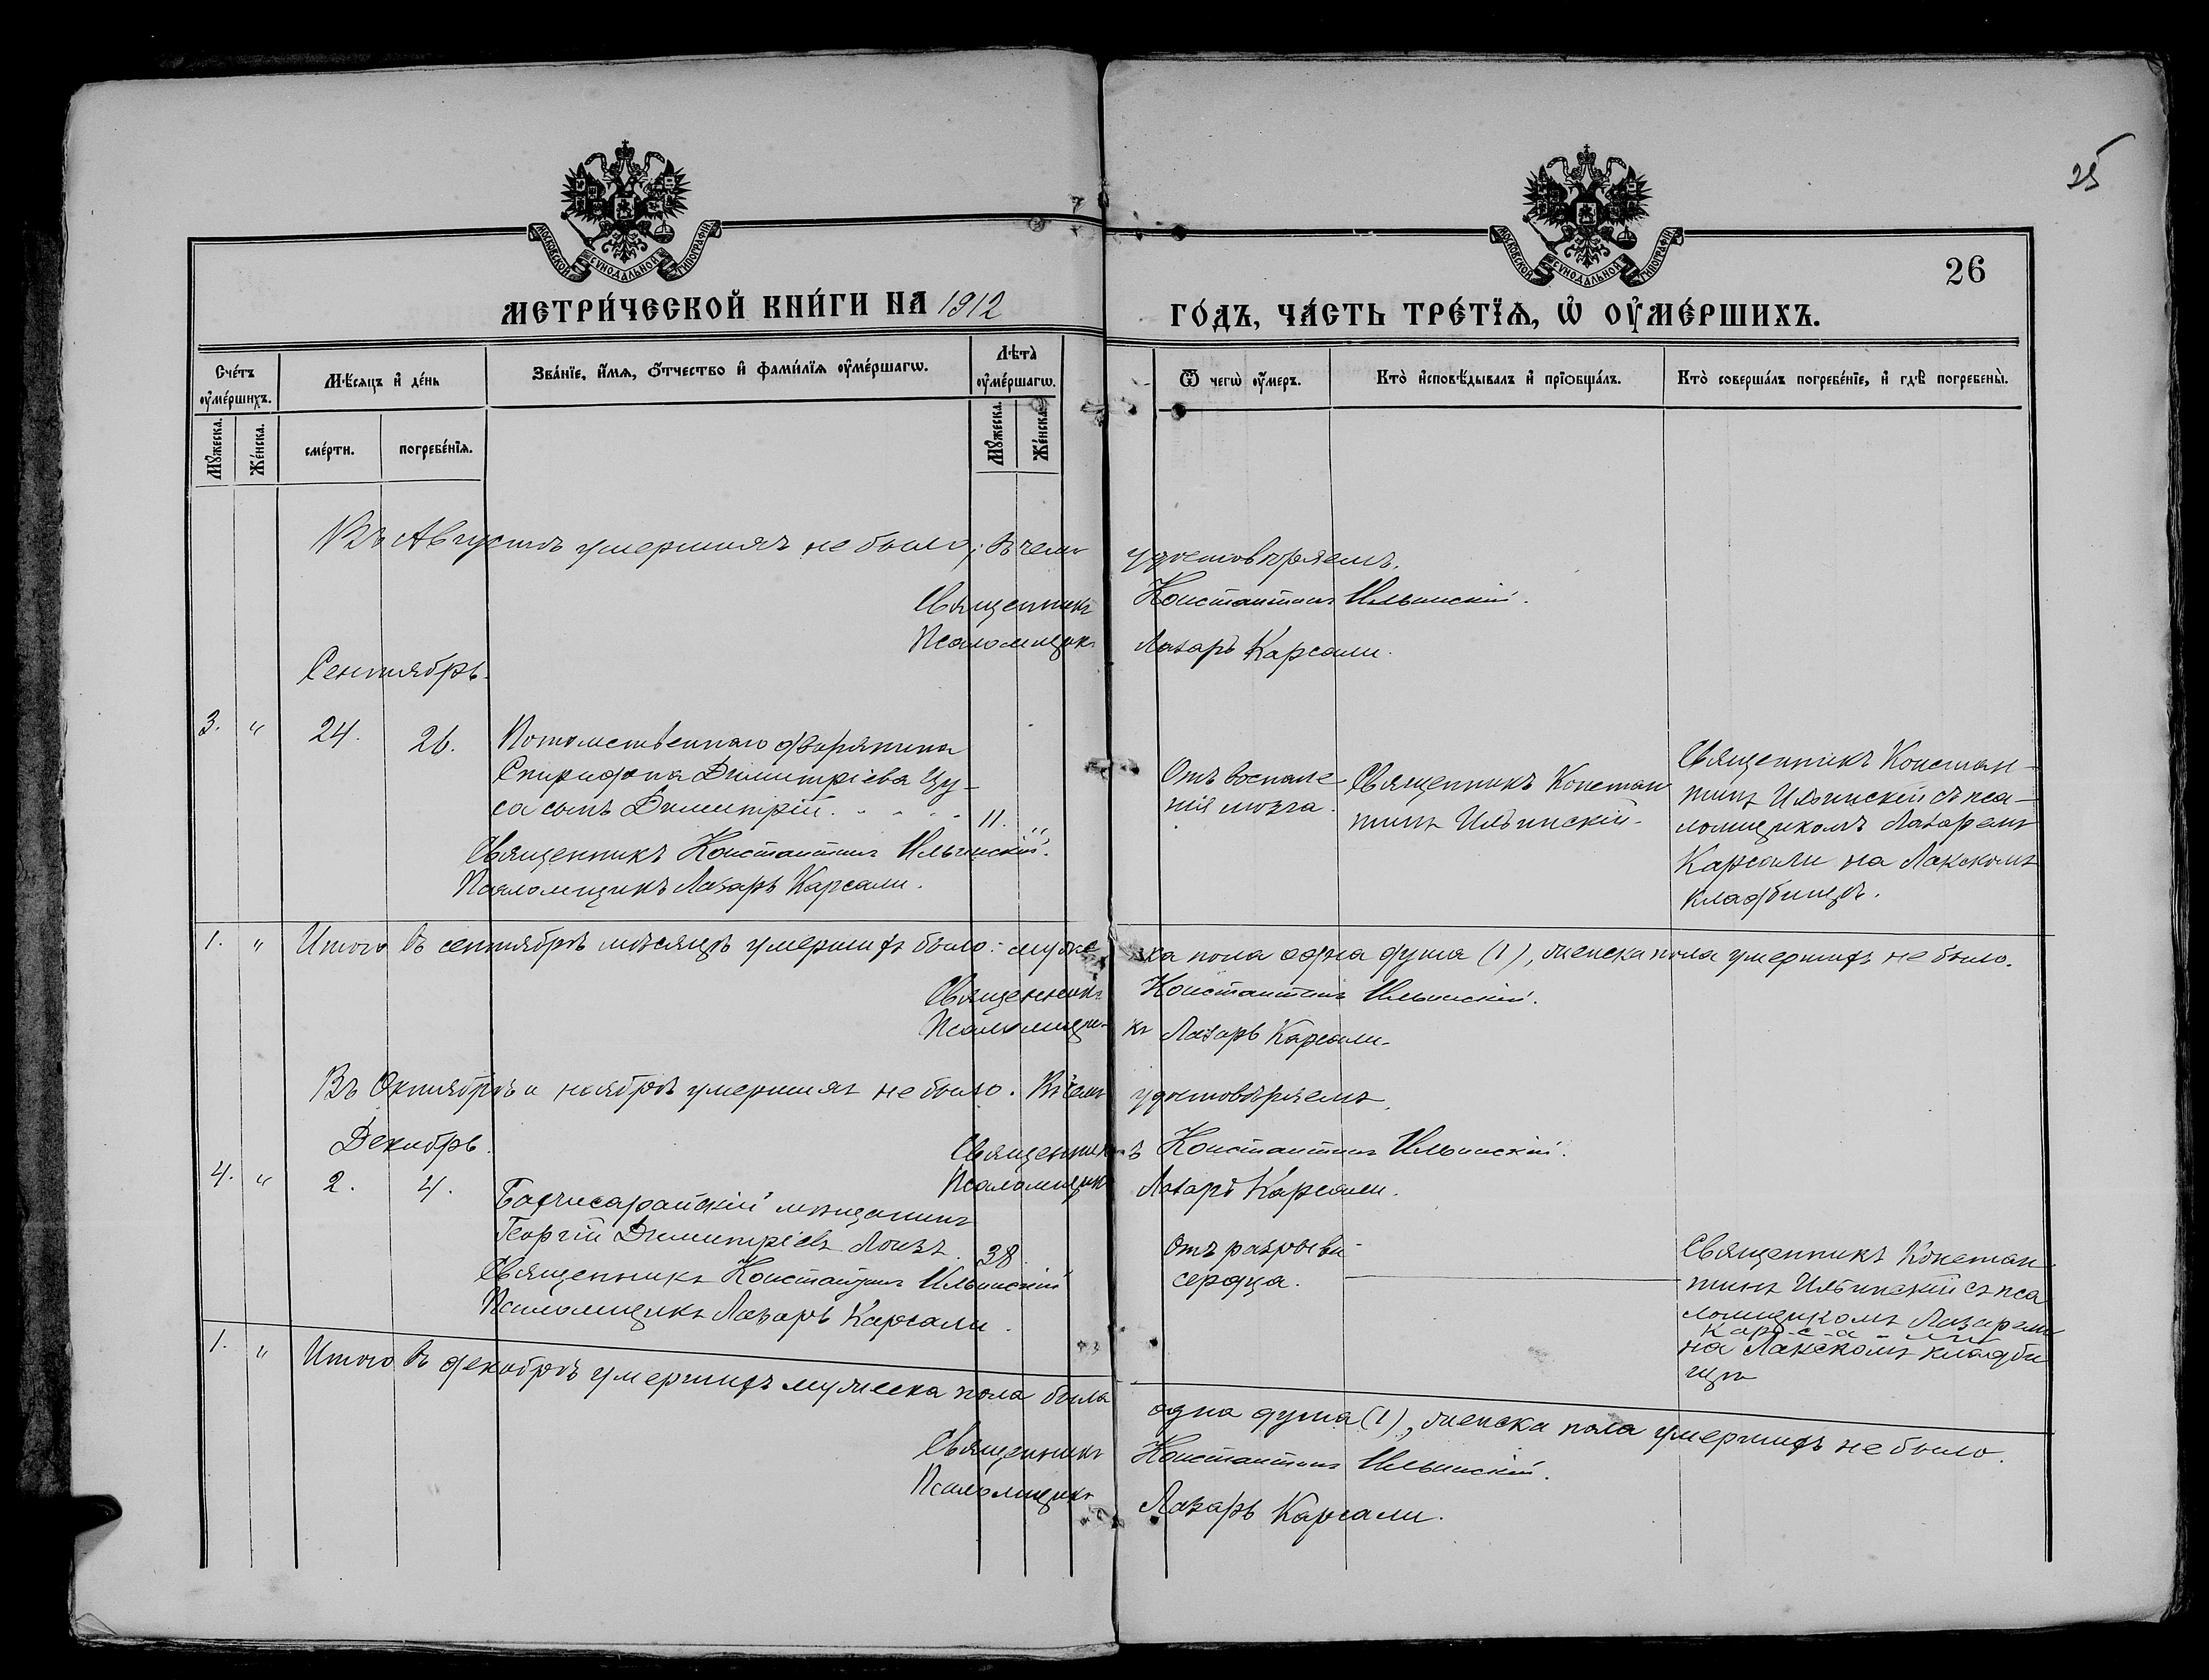 25
26
МОСКОВСКОЙ СѴНОДАЛЬНОЙ ТИПОГРАФІИ
МОСКОВСКОЙ СѴНОДАЛЬНОЙ ТИПОГРАФІИ
МЕТРИ́ЧЕСКОЙ КНИ́ГИ НА 1912 ГО́ДЪ, ЧА́СТЬ ТРЕ́ТЇѦ, Ѡ҆ ОУ҆МЕ́РШИХЪ.
Сче́тъ оу҆ме́ршихъ.
Мѣ́сяцъ и҆ де́нь
Зва́нїе, и҆́мѧ, ѻ҆́тчество и҆ фами́лїѧ оу҆ме́ршагѡ.
Лѣта̀ оу҆ме́ршагѡ.
Ѿ чегѡ̀ оу҆́меръ.
Кто̀ и҆сповѣ́дывалъ и҆ прїѻбща́лъ.
Кто̀ соверша́лъ погребе́нїе, и҆ гдѣ̀ погребены̀.
Мꙋ́жеска.
Же́нска.
сме́рти.
погребе́нїѧ.
Мꙋ́жеска.
Же́нска.
Въ Августѣ умершихъ не было; в чемъ удостовѣряемъ.
Священникъ Константинъ Ильинскій.
Псаломщикъ Лазарь Карсали.
Сентябрь.
3. " 24. 26.
Потомственнаго дворянина
Спиридона Димитріева Цу-
са сынъ Димитрій. - - - - 11. "
Священникъ Константинъ Ильинскій.
Псаломщикъ Лазарь Карсали.
Отъ воспале
нія мозга.
Священникъ Констан
тинъ Ильинскій.
Священникъ Констан-
тинъ Ильинскій съ пса-
ломщикомъ Лазаремъ
Карсали на Лакскомъ
кладбищѣ.
1. " Итого въ сентябрѣ мѣсяцѣ умершихъ было: мужеска пола одна душа (1), женска пола умершихъ не было.
Священникъ Константинъ Ильинскій.
Псаломщикъ Лазарь Карсали.
Въ Октябрѣ и ноябрѣ умершихъ не было. Въ чемъ удостовѣряемъ.
Декабрь.
Священникъ Константинъ Ильинскій.
Псаломщикъ Лазарь Карсали.
4. " 2. 4.
Бахчисарайскій мѣщанинъ
Георгій Димитріевъ 38
Священникъ Константинъ Ильинскій
Псаломщикъ Лазарь Карсали.
Отъ разрыва
сердца.
Священникъ Констан-
тинъ Ильинскій съ пса
ломщикомъ Лазаремъ
Кар-с-а-ли
на Лакскомъ кладби
щѣ
1. " Итого въ декабрѣ умершихъ мужеска пола была одна душа (1), женска пола умершихъ не было.
Священникъ Константинъ Ильинскій.
Псаломщикъ Лазарь Карсали.